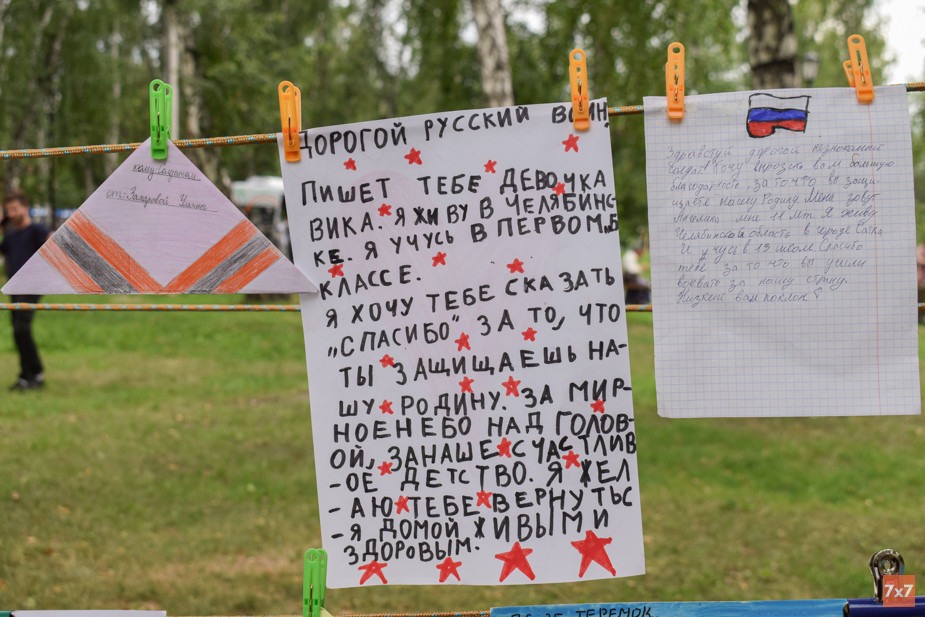 кому: солдатам.
от:
ДОРОГОЙ РУССКИЙ ВОИН,
ПИШЕТ ТЕБЕ ДЕВОЧКА
ВИКА. Я ЖИВУ В ЧЕЛЯБИНС-
КЕ. Я УЧУСЬ В ПЕРВОМ,Б
КЛАССЕ.
Я ХОЧУ ТЕБЕ СКАЗАТЬ
"СПАСИБО" ЗА ТО, ЧТО
ТЫ ЗАЩИЩАЕШЬ НА-
ШУ РОДИНУ. ЗА МИР-
НОЕ НЕБО НАД ГОЛОВ-
ОЙ, ЗА НАШЕ СЧАСТЛИВ
-ОЕ ДЕТСТВО. Я ЖЕЛ
-АЮ ТЕБЕ ВЕРНУТЬС
-Я ДОМОЙ ЖИВЫМ И
ЗДОРОВЫМ.
Здравствуй дорогой незнакомый
солдат. Хочу выразить вам большую
благодарность за то что вы защи-
щаете нашу Родину. Меня зовут
мне 11 лет. Я живу
Челябинской области в городе Сатка
И учусь в 13 школе. Спасибо
тебе за то что вы ушли
воевать за нашу страну.
Низкий вам поклон!
ТЕРЕМОК
7x7